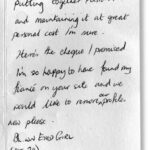 putting together
and maintaining it at great
personal cost I'm sure.
Here's the cheque I promised
I'm so happy to have found my
fiancé on your site and we
would like to remove our profile.
now please.